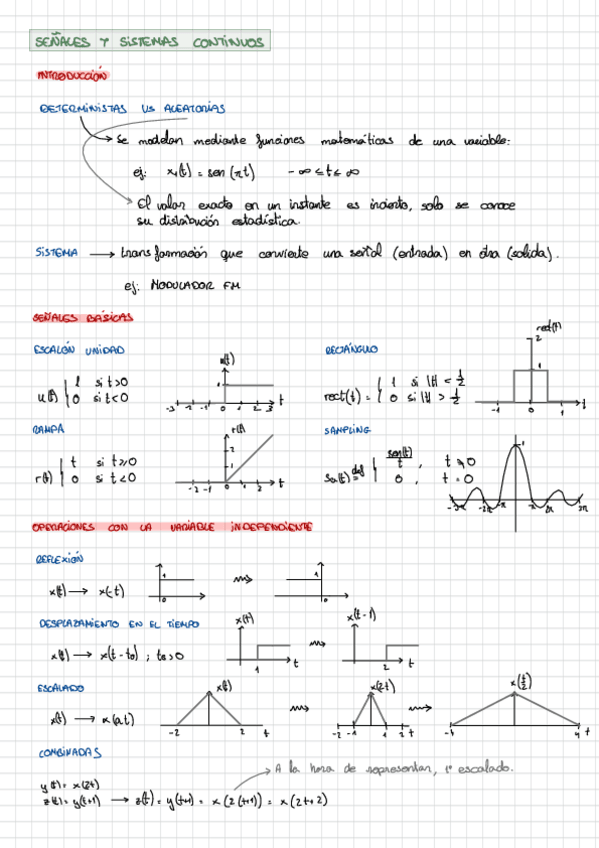 SEÑALES Y SISTEMAS CONTINUOS
INTRODUCCIÓN
DETERMINISTAS VS ALEATORIAS
Se modelan mediante funciones matemáticas de una variable:
ej: x₁(t) = sen(πt) -∞ ≤ t ≤ ∞
El valor exacto en un instante es incierto, solo se conoce
su distribución estadística.
SISTEMA → transformación que convierte una señal (entrada) en otra (salida).
ej: MODULADOR FM
SEÑALES BÁSICAS
ESCALÓN UNIDAD
u(t) | 1 si t>0
0 si t<0
u(t)
1
-3 -2 -1 0 1 2 3 t
RECTÁNGULO
rect(t) = | 1 si |t| < 1/2
0 si |t| > 1/2
rect(t)
2
1
-1 0 1 t
RAMPA
r(t) | t si t≥0
0 si t<0
r(t)
2
1
-2 -1 0 1 2 t
SAMPLING
Sa(t) def | sen(t)/t , t ≠ 0
0 , t = 0
1
-3π -2π -π π 2π 3π
OPERACIONES CON LA VARIABLE INDEPENDIENTE
REFLEXIÓN
x(t) → x(-t)
1
0
1
0
DESPLAZAMIENTO EN EL TIEMPO
x(t) → x(t-t₀) ; t₀>0
x(t)
1 t
x(t-1)
2 t
ESCALADO
x(t) → x(at)
x(t)
-2 2 t
x(2t)
-2 -1 1 2 t
x(t/2)
-4 4 t
COMBINADAS
A la hora de representar, 1º escalado.
y(t) = x(2t)
z(t) = y(t+1) → z(t) = y(t+1) = x(2(t+1)) = x(2t+2)